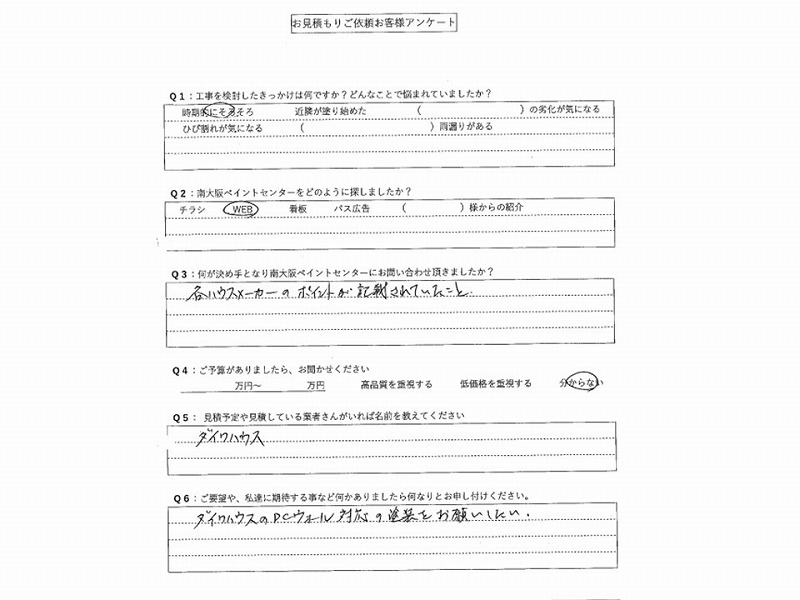 お見積もりご依頼お客様アンケート
Q1：工事を検討したきっかけは何ですか？どんなことで悩まれていましたか？
時期的にそろそろ 近隣が塗り始めた （ ）の劣化が気になる
ひび割れが気になる （ ）雨漏りがある
Q2：南大阪ペイントセンターをどのように探しましたか？
チラシ WEB 看板 バス広告 （ ）様からの紹介
Q3：何が決め手となり南大阪ペイントセンターにお問い合わせ頂きましたか？
各ハウスメーカーのポイントが記載されていたこと.
Q4：ご予算がありましたら、お聞かせください
万円～ 万円 高品質を重視する 低価格を重視する 分からない
Q5：見積予定や見積している業者さんがいれば名前を教えてください
ダイワハウス
Q6：ご要望や、私達に期待する事など何かありましたら何なりとお申し付けください。
ダイワハウスのDCウォール対応の塗装をお願いしたい.